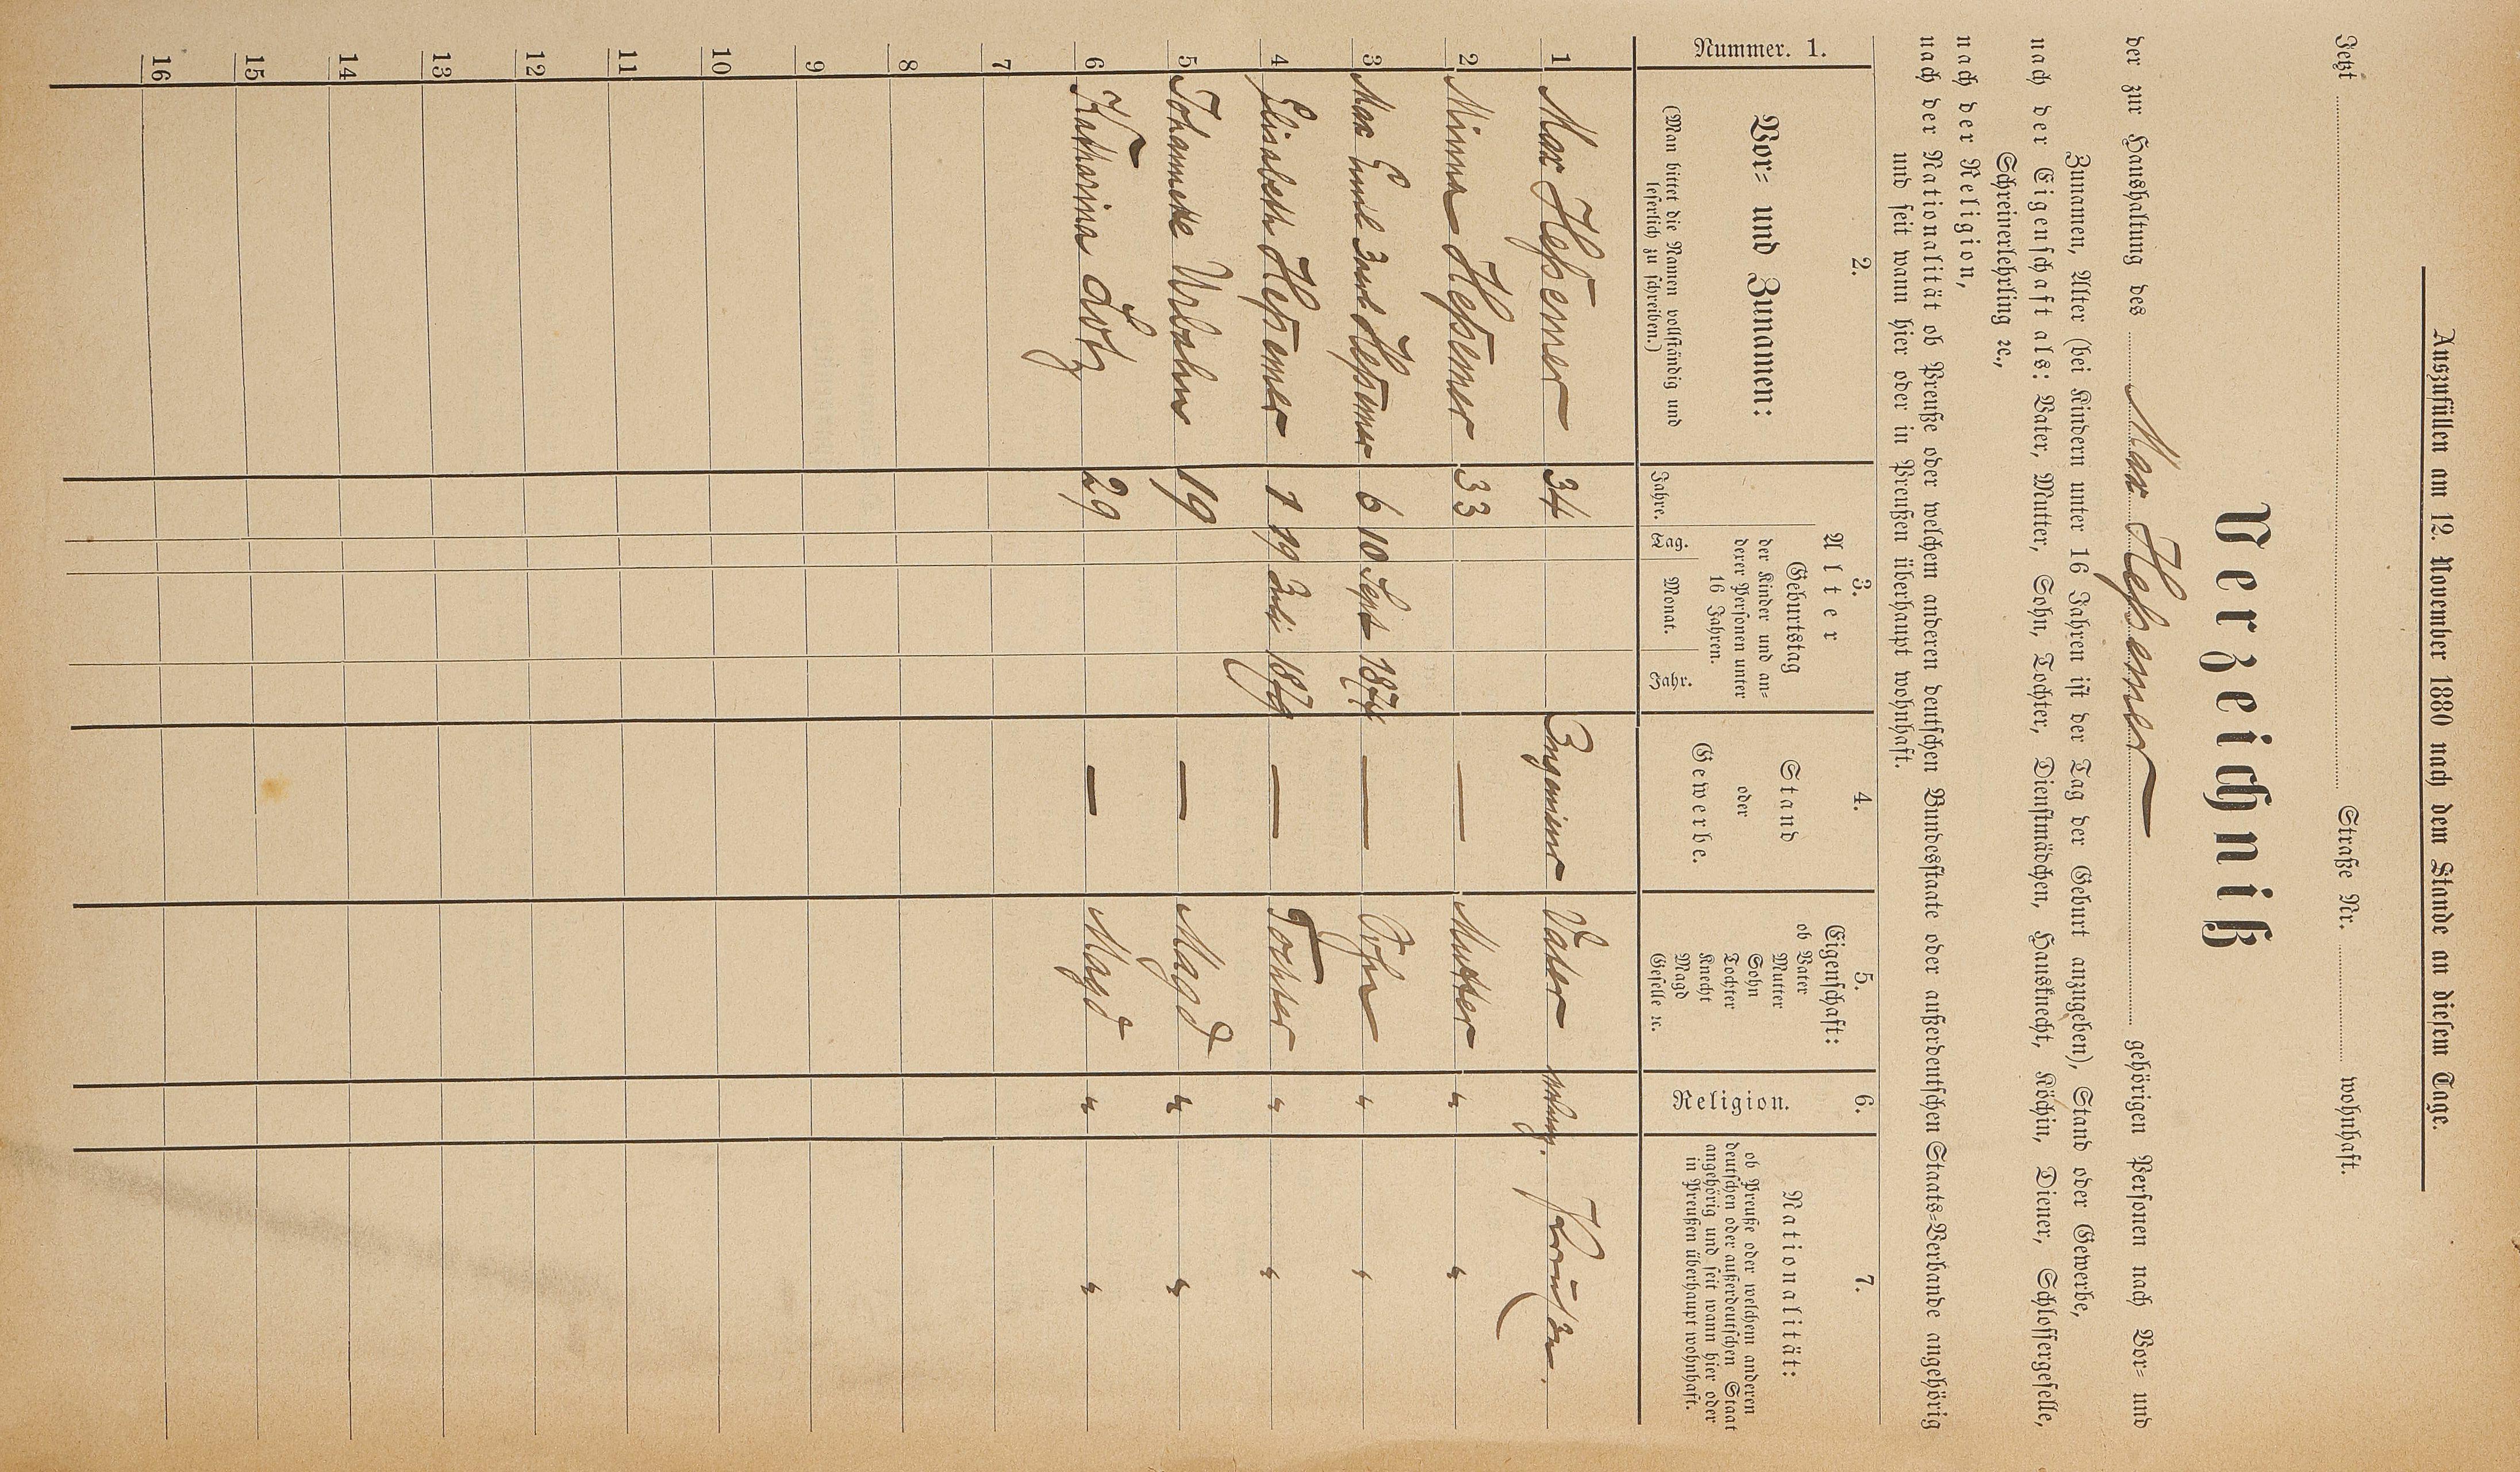 Auszufüllen am 12. November 1880 nach dem Stande an diesem Tage.
Jetzt Straße Nr. wohnhaft.
Verzeichniß
der zur Haushaltung des Max Heßemer gehörigen Personen nach Vor- und
Zunamen, Alter (bei Kindern unter 16 Jahren ist der Tag der Geburt anzugeben), Stand oder Gewerbe,
nach der Eigenschaft als: Vater, Mutter, Sohn, Tochter, Dienstmädchen, Hausknecht, Köchin, Diener, Schlossergeselle,
Schreinerlehrling ꝛc.,
nach der Religion,
nach der Nationalität ob Preuße oder welchem anderen deutschen Bundesstaate oder außerdeutschen Staats-Verbande angehörig
und seit wann hier oder in Preußen überhaupt wohnhaft.
Nummer. 1.
2.
Vor- und Zunamen:
(Man bittet die Namen vollständig und
leserlich zu schreiben.)
3.
Alter
Geburtstag
der Kinder und an-
derer Personen unter
16 Jahren.
Jahre. Tag. Monat. Jahr.
4.
Stand
oder
Gewerbe.
5.
Eigenschaft:
ob Vater
Mutter
Sohn
Tochter
Knecht
Magd
Geselle ꝛc.
6.
Religion.
7.
Nationalität:
ob Preuße oder welchem anderen
deutschen oder außerdeutschen Staat
angehörig und seit wann hier oder
in Preußen überhaupt wohnhaft.
1 Max Heßemer 34 Ingenieur Vater evang. Preußen.
2 Minna Heßemer 33 — Mutter " "
3 Max Emil Paul Heßemer 6 10 Sept 1874 — Sohn " "
4 Elisabeth Heßemer 1 19 Juli 1879 — Tochter " "
5 Johannette Urbahn 19 — Magd " "
6 Katharina Lotz 29 — Magd " "
7
8
9
10
11
12
13
14
15
16